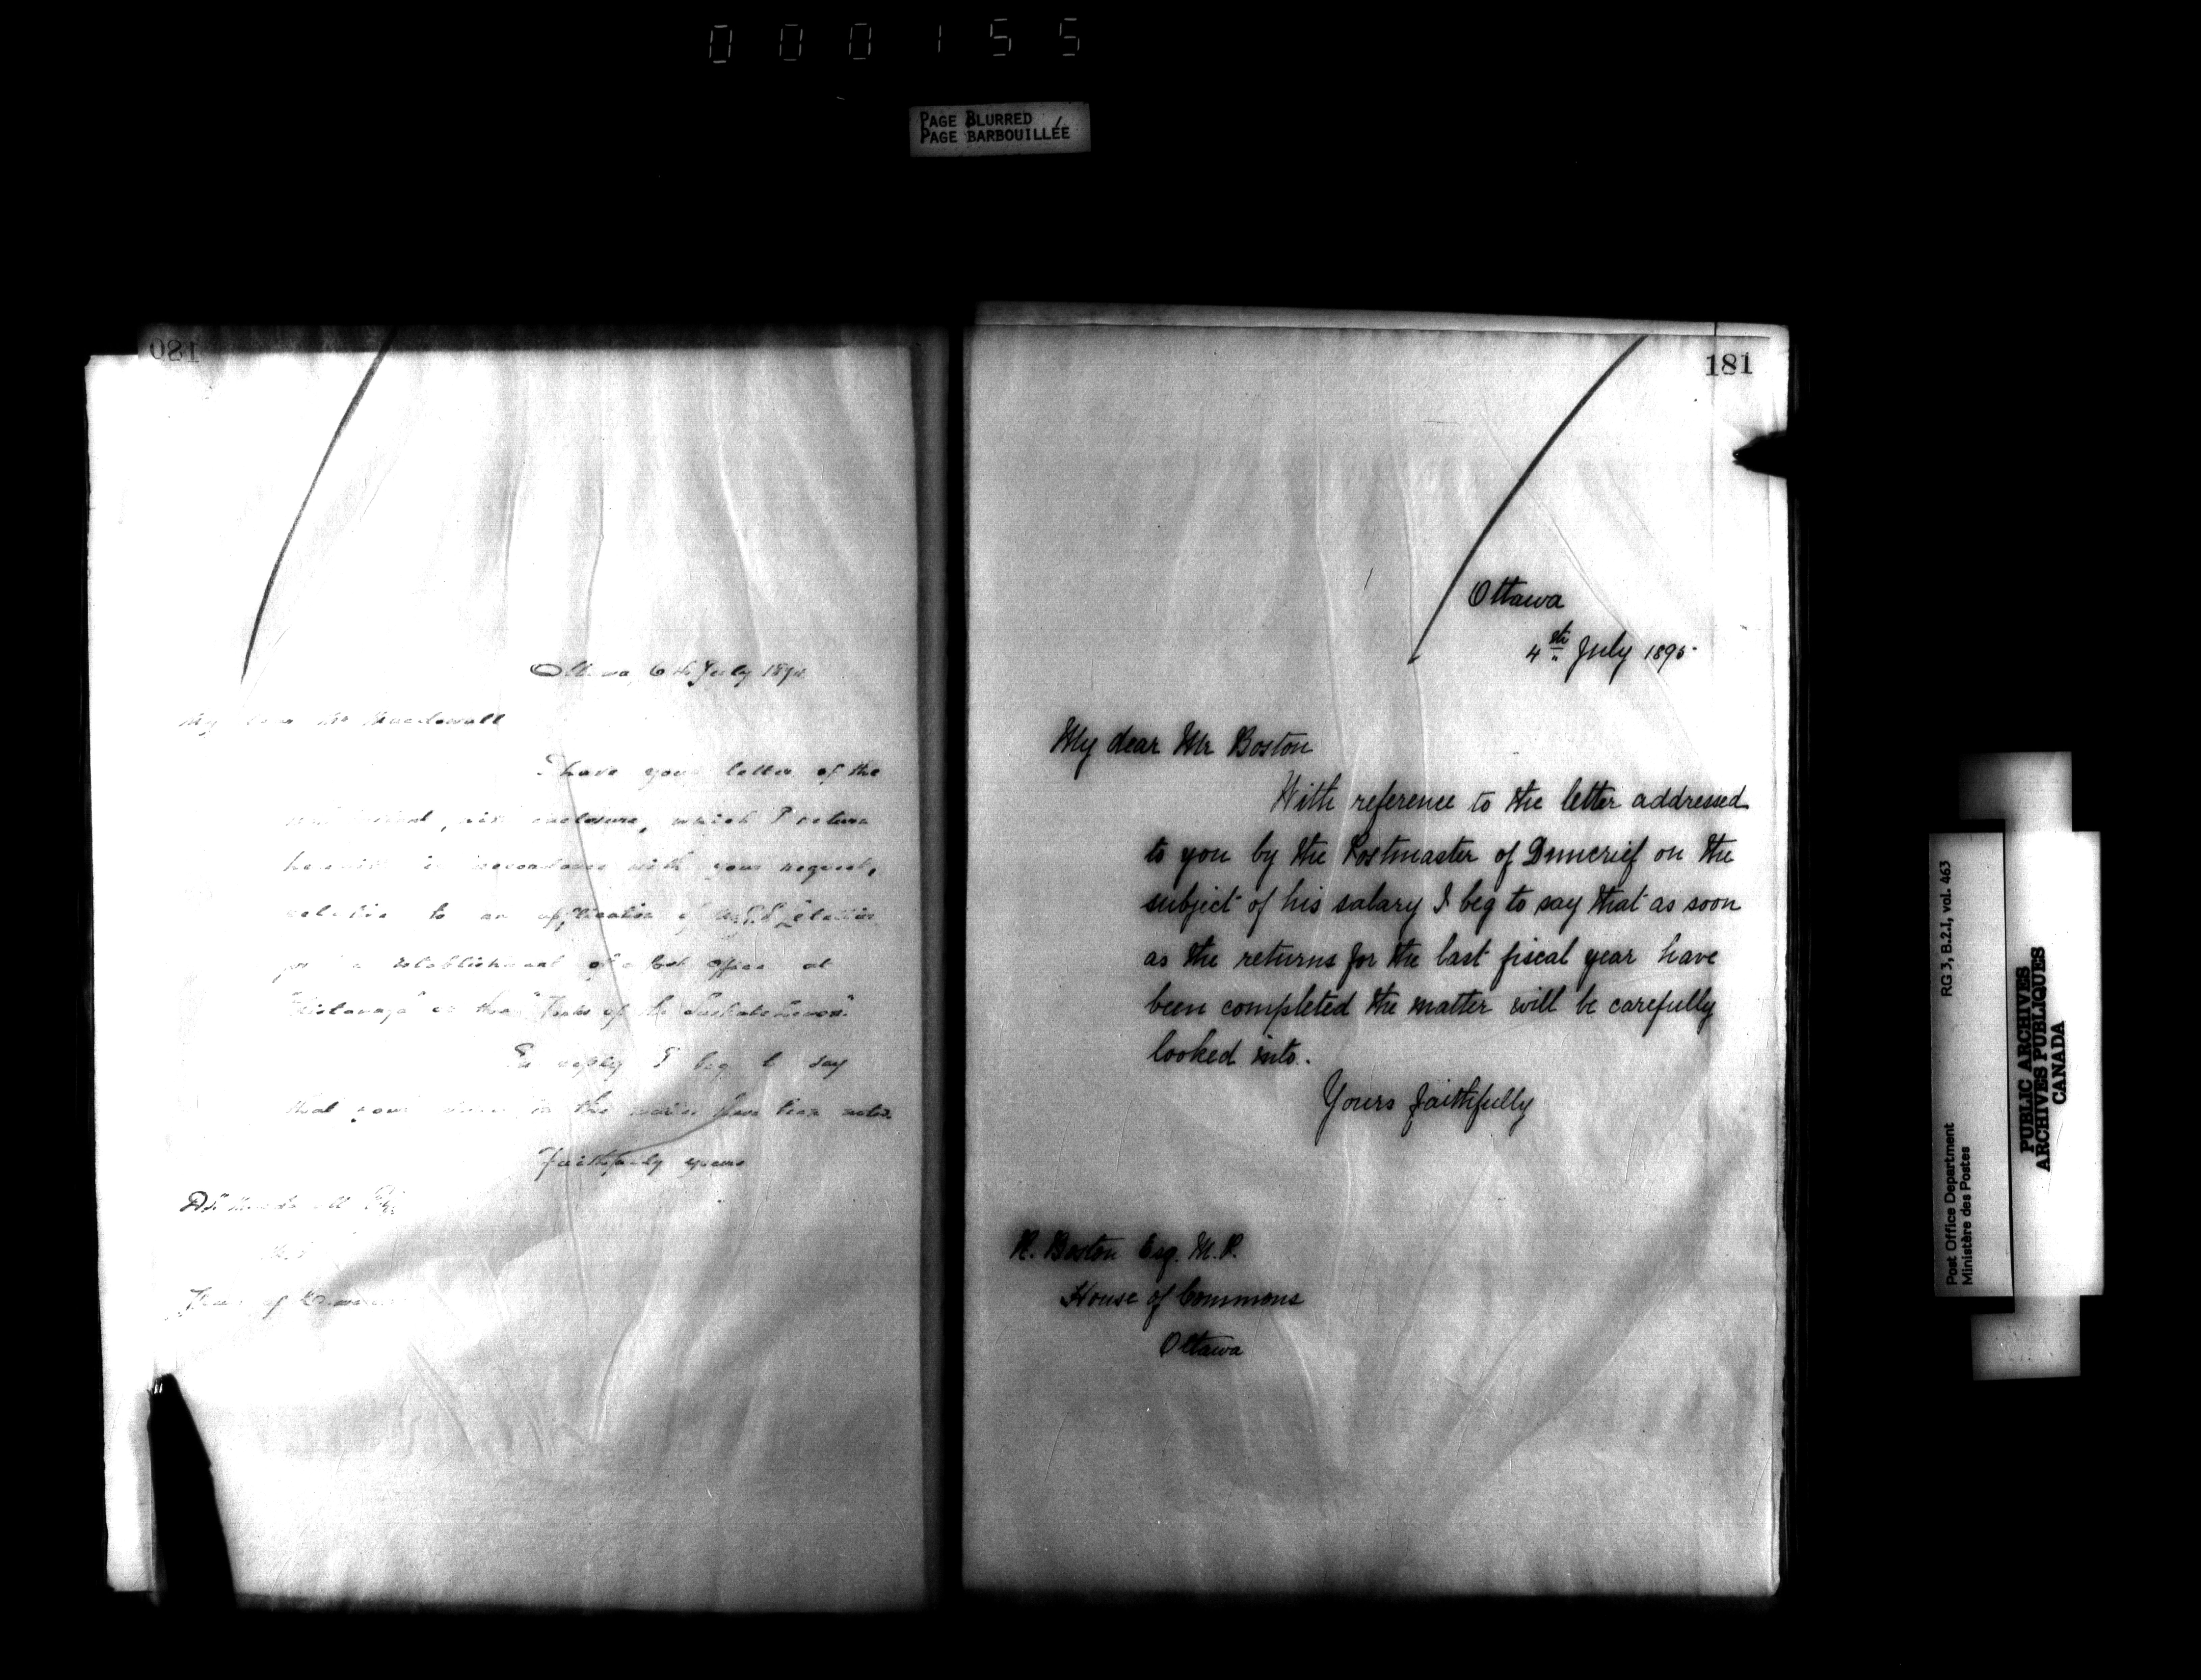 000155
PAGE BLURRED
PAGE BARBOUILLÉE
180
Ottawa, 6th July 189
My dear Mr Macdowall
I have your letter of the
instant, with enclosure, which I return
herewith in accordance with your request,
relative to an application of
for establishment of a Post Office at
or the "Forks of the Saskatchewan".
In reply I beg to say
that your views in the matter have been noted.
Faithfully yours
Macdowall Esq
M.P.
House of Commons
181
Ottawa
4th July 1895
My dear Mr Boston
With reference to the letter addressed
to you by the Postmaster of Duncrief on the
subject of his salary I beg to say that as soon
as the returns for the last fiscal year have
been completed the matter will be carefully
looked into.
Yours faithfully
R. Boston Esq. M.P.
House of Commons
Ottawa
RG 3, B.2.I, vol. 463
Post Office Department
Ministère des Postes
PUBLIC ARCHIVES
ARCHIVES PUBLIQUES
CANADA